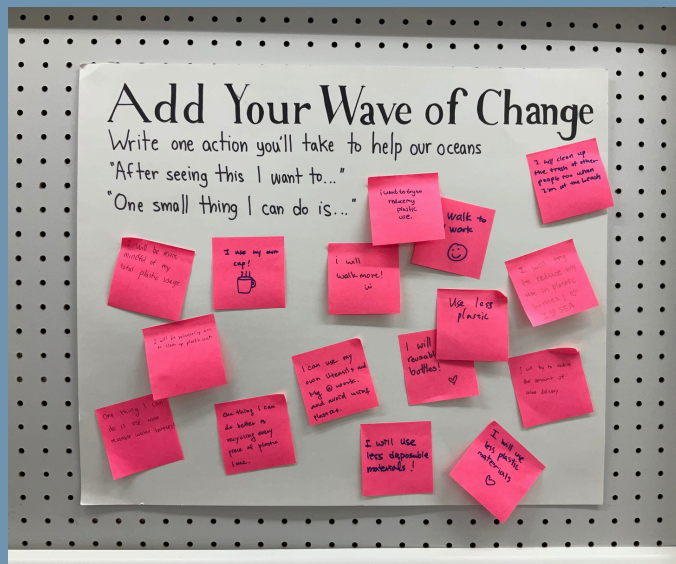 Add Your Wave of Change
Write one action you'll take to help our oceans
"After seeing this I want to..."
"One small thing I can do is..."
I will clean up
the trash of other
people too when
I'm at the beach
i want to try to
reduce my
plastic
use.
walk to
work
I will be more
mindful of my
total plastic usage
I use my own
cup!
i will
walk more!
I will try
to reduce my
use in plastic
SEA
Use less
plastic
I will
reusable
bottles!
I will be volunteering
to clean up plastic
I can use my
own utensils
@ work
and avoid using
plastic.
I will try to reduce
the amount of
delivery
One thing I can
do is use more
reusable water bottles!
One thing I can
do better is
recycling every
piece of plastic
I use.
I will use
less disposable
materials!
I will use
less plastic
materials